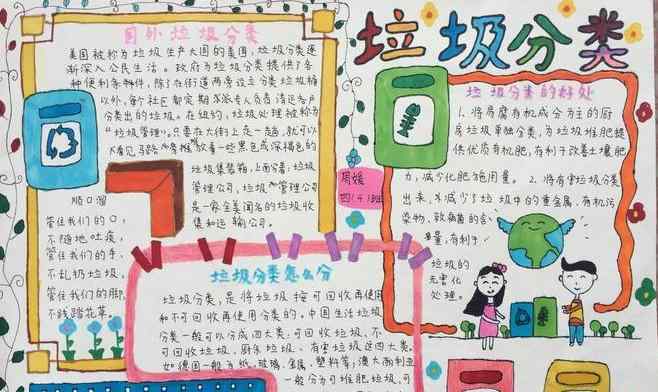 垃圾分类
国外垃圾分类
美国被称为垃圾生产大国的美国，垃圾分类逐
渐深入公民生活。政府为垃圾分类提供了各
种便利条件，除了在街道两旁设立分类垃圾桶
以外，每个社区都定期派专人负责清运各户
分类出的垃圾。在纽约，垃圾处理被称为
"垃圾管理"。只要在大街上走一走，就可以
看见马路旁停放着一些黑色或深褐色的
垃圾集装箱，上面分着：垃圾
管理公司，垃圾管理公司
是一家全美闻名的垃圾收
集和运输公司。
顺口溜
管住我们的口，
不随地吐痰，
管住我们的手，
不乱扔垃圾，
管住我们的脚，
不践踏花草。
周媛
四(4)班
垃圾分类的好处
1、将易腐有机成分为主的厨
房垃圾单独分类，为垃圾堆肥提
供优质有机肥，有利于改善土壤肥
力，减少化肥施用量。2、将有害垃圾分类
出来，减少了垃圾中的重金属、有机污
染物、致病菌的含
量，有利于
垃圾的
无害化
处理。
垃圾分类怎么分
垃圾分类，是将垃圾按可回收再使用
和不可回收再使用分类的。中国生活垃圾
分类一般可以分成四大类：可回收垃圾、不
可回收垃圾、厨余垃圾、有害垃圾这四大类。
如德国一般为纸、玻璃、金属、塑料等；澳大利亚
一般分为可堆肥垃圾，可